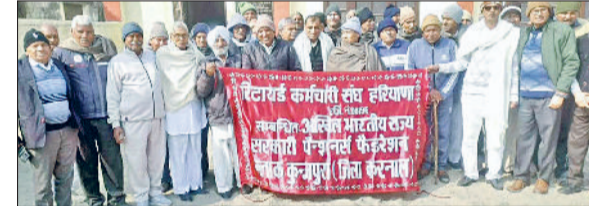 रिटायर्ड कर्मचारी संघ हरियाणा
सम्बन्धित अखिल भारतीय राज्य
सरकारी पेंशनर्स फैडरेशन
ब्लाक कुन्जपुरा (जिला करनाल)